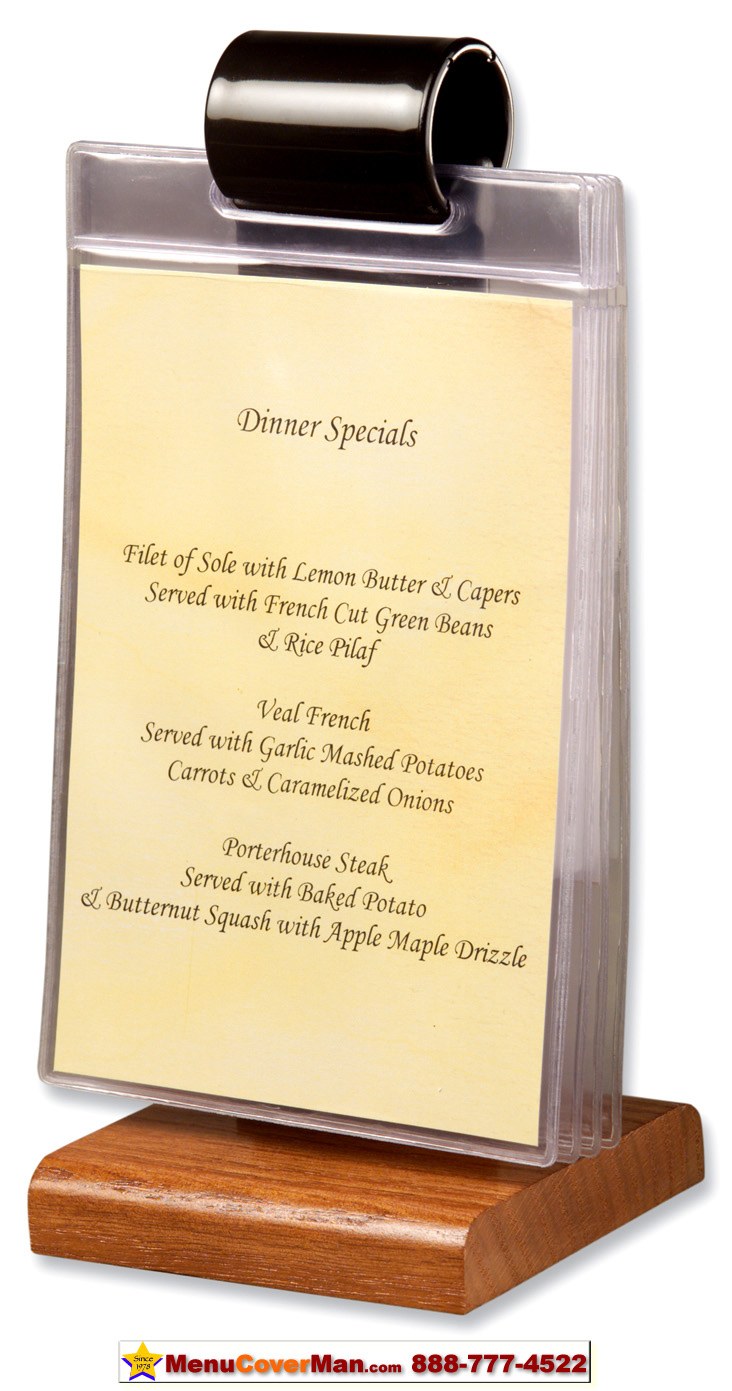 Dinner Specials
Filet of Sole with Lemon Butter & Capers
Served with French Cut Green Beans
& Rice Pilaf
Veal French
Served with Garlic Mashed Potatoes
Carrots & Caramelized Onions
Porterhouse Steak
Served with Baked Potato
& Butternut Squash with Apple Maple Drizzle
Since
1978
MenuCoverMan.com 888-777-4522